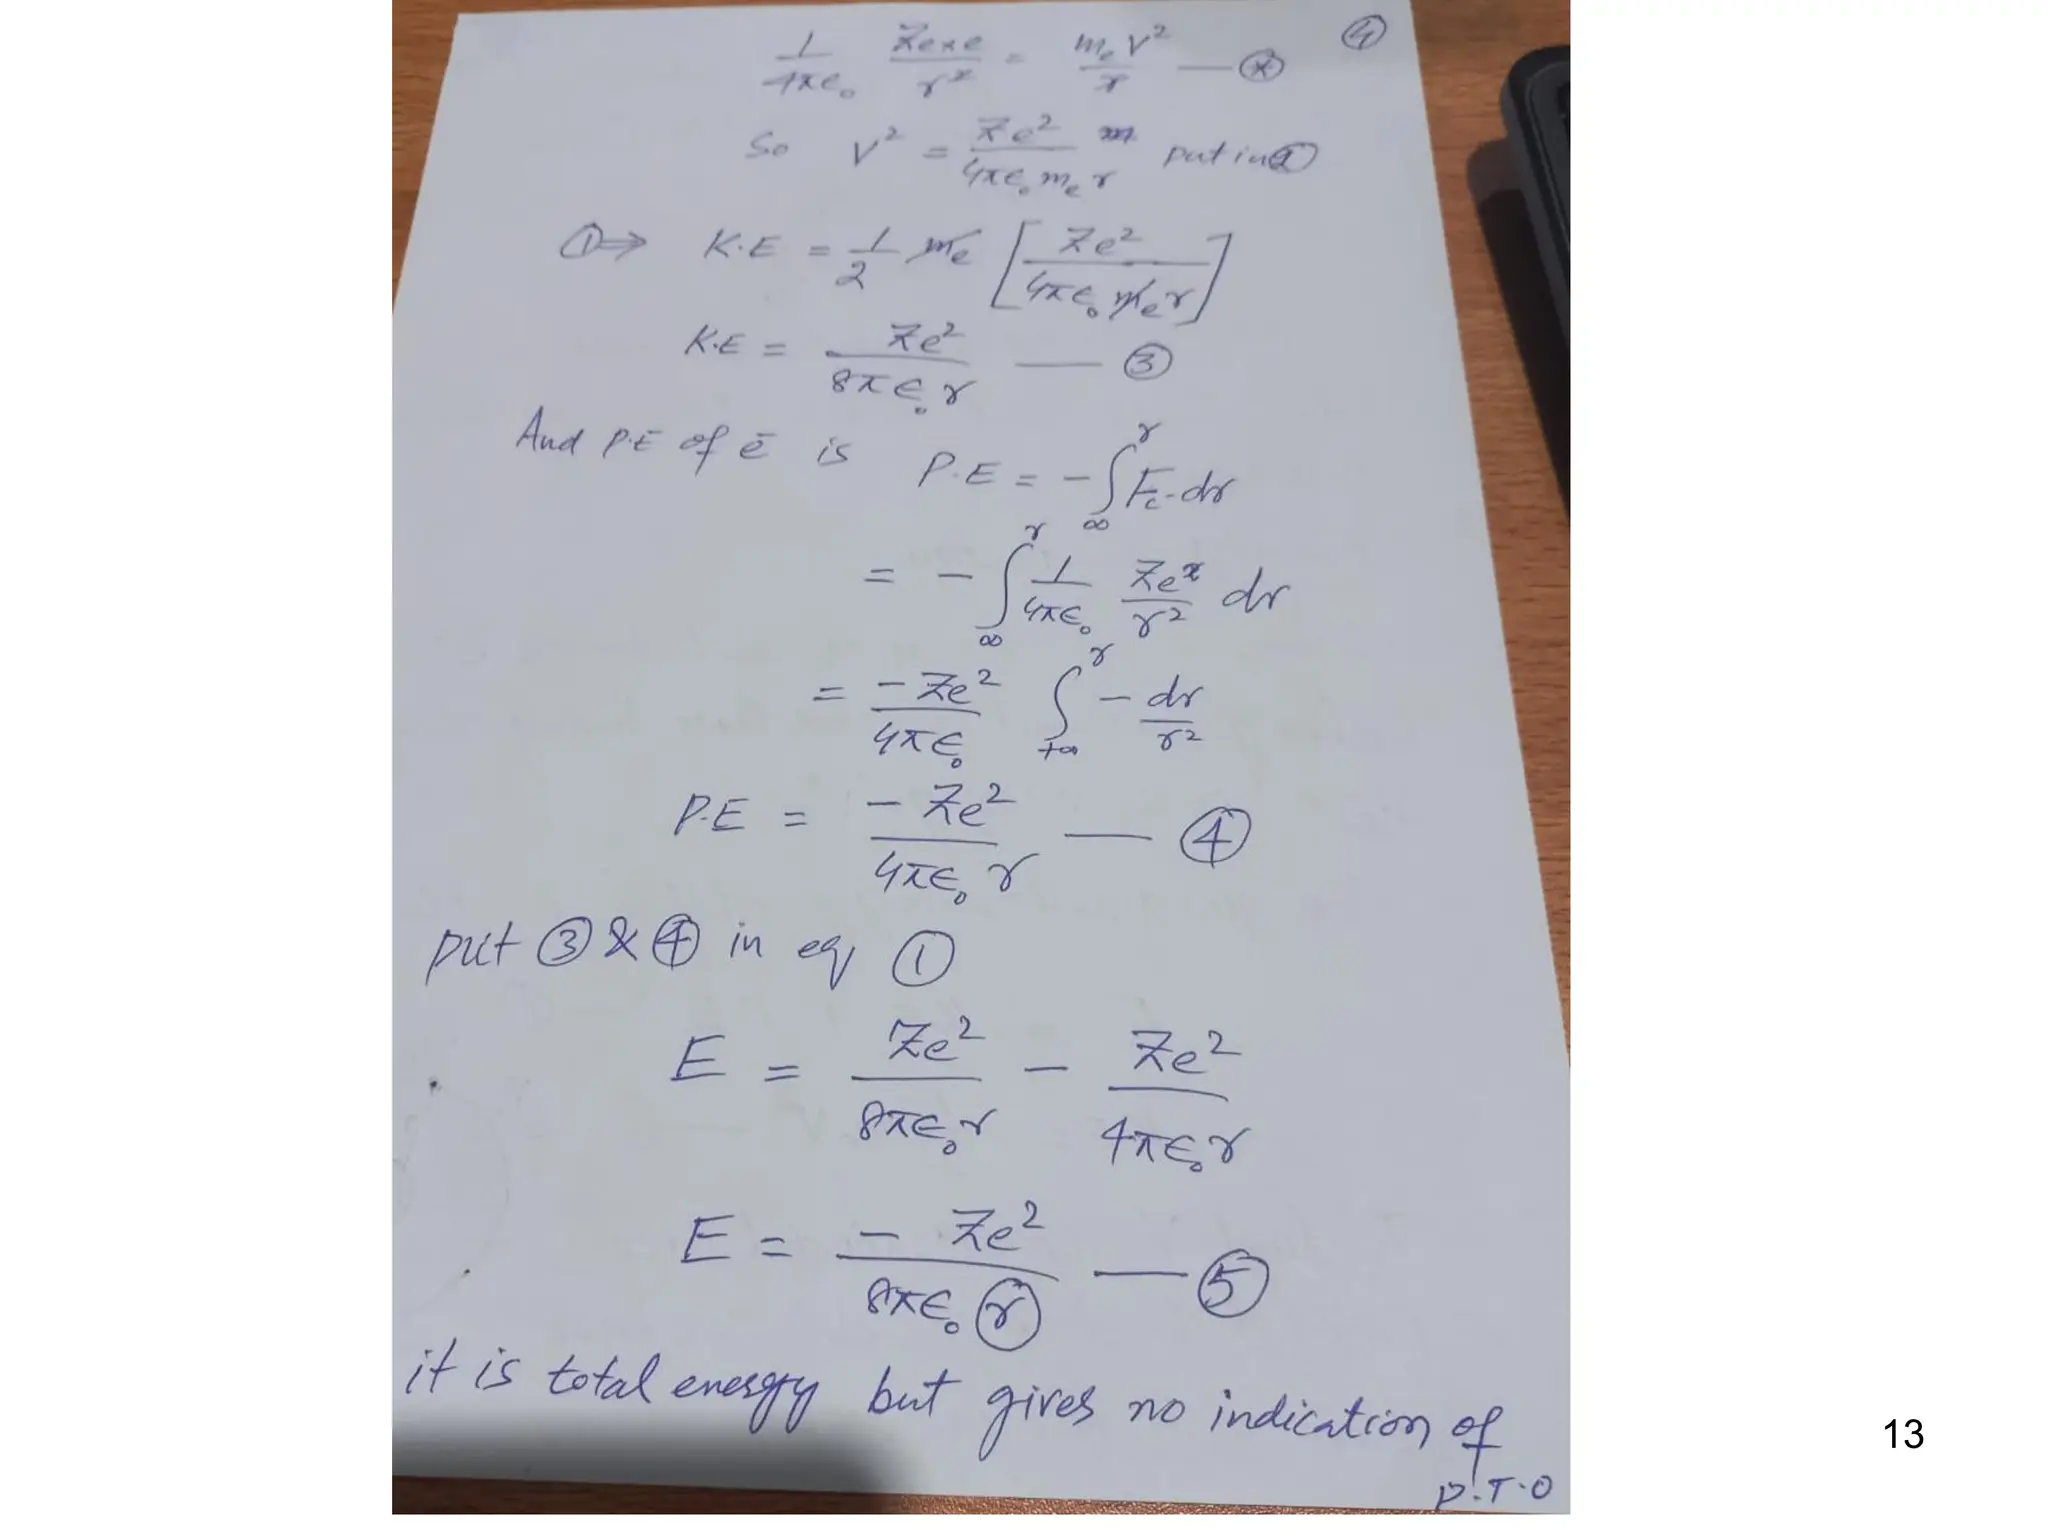 ④
1/4πε₀ Ze×e/r² = mₑV²/r — ⊛
So V² = Ze²/4πε₀mₑr put in ②
①⇒ K.E = 1/2 mₑ [Ze²/4πε₀mₑr]
K.E = Ze²/8πε₀r — ③
And P.E of ē is P.E = -∫∞^r F_c.dr
= -∫∞^r 1/4πε₀ Ze²/r² dr
= -Ze²/4πε₀ ∫+∞^r -dr/r²
P.E = -Ze²/4πε₀r — ④
put ③ & ④ in eq ①
E = Ze²/8πε₀r - Ze²/4πε₀r
E = -Ze²/8πε₀r — ⑤
it is total energy but gives no indication of
P.T.O
13